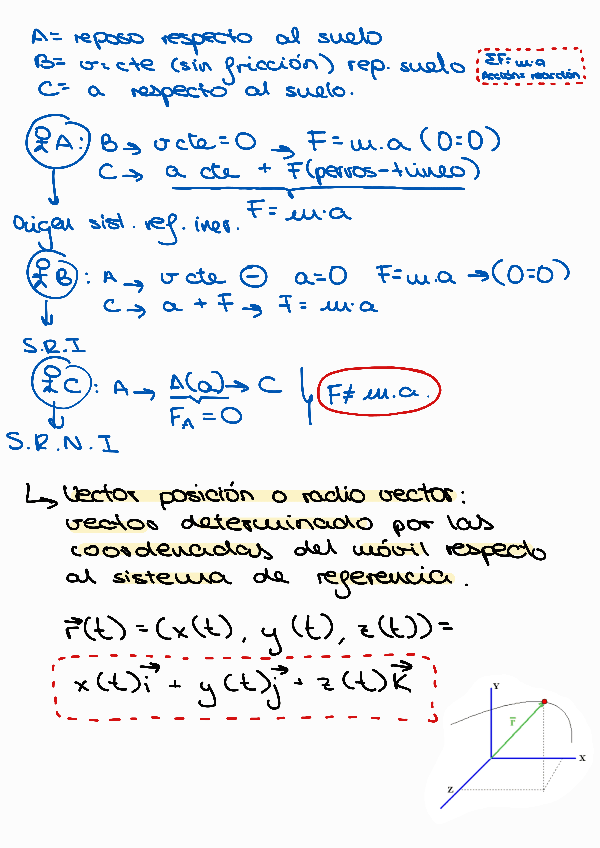 A= reposo respecto al suelo
B= v=cte (sin fricción) rep. suelo
ΣF=m·a
Acción=reacción
C= a respecto al suelo.
A: B → v cte=0 → F=m.a (0=0)
C → a cte + F(perros-trineo)
F=m·a
Origen sist. ref. iner.
B: A → v cte ⊖ a=0 F=m.a →(0=0)
C → a + F → F=m·a
S.R.I
C: A → A(a) → C F≠m.a.
F_A=0
S.R.N.I
↳ Vector posición o radio vector:
vector determinado por las
coordenadas del móvil respecto
al sistema de referencia.
r⃗(t)=(x(t), y(t), z(t))=
x(t)i⃗ + y(t)j⃗ + z(t)K⃗
Y
r⃗
X
Z